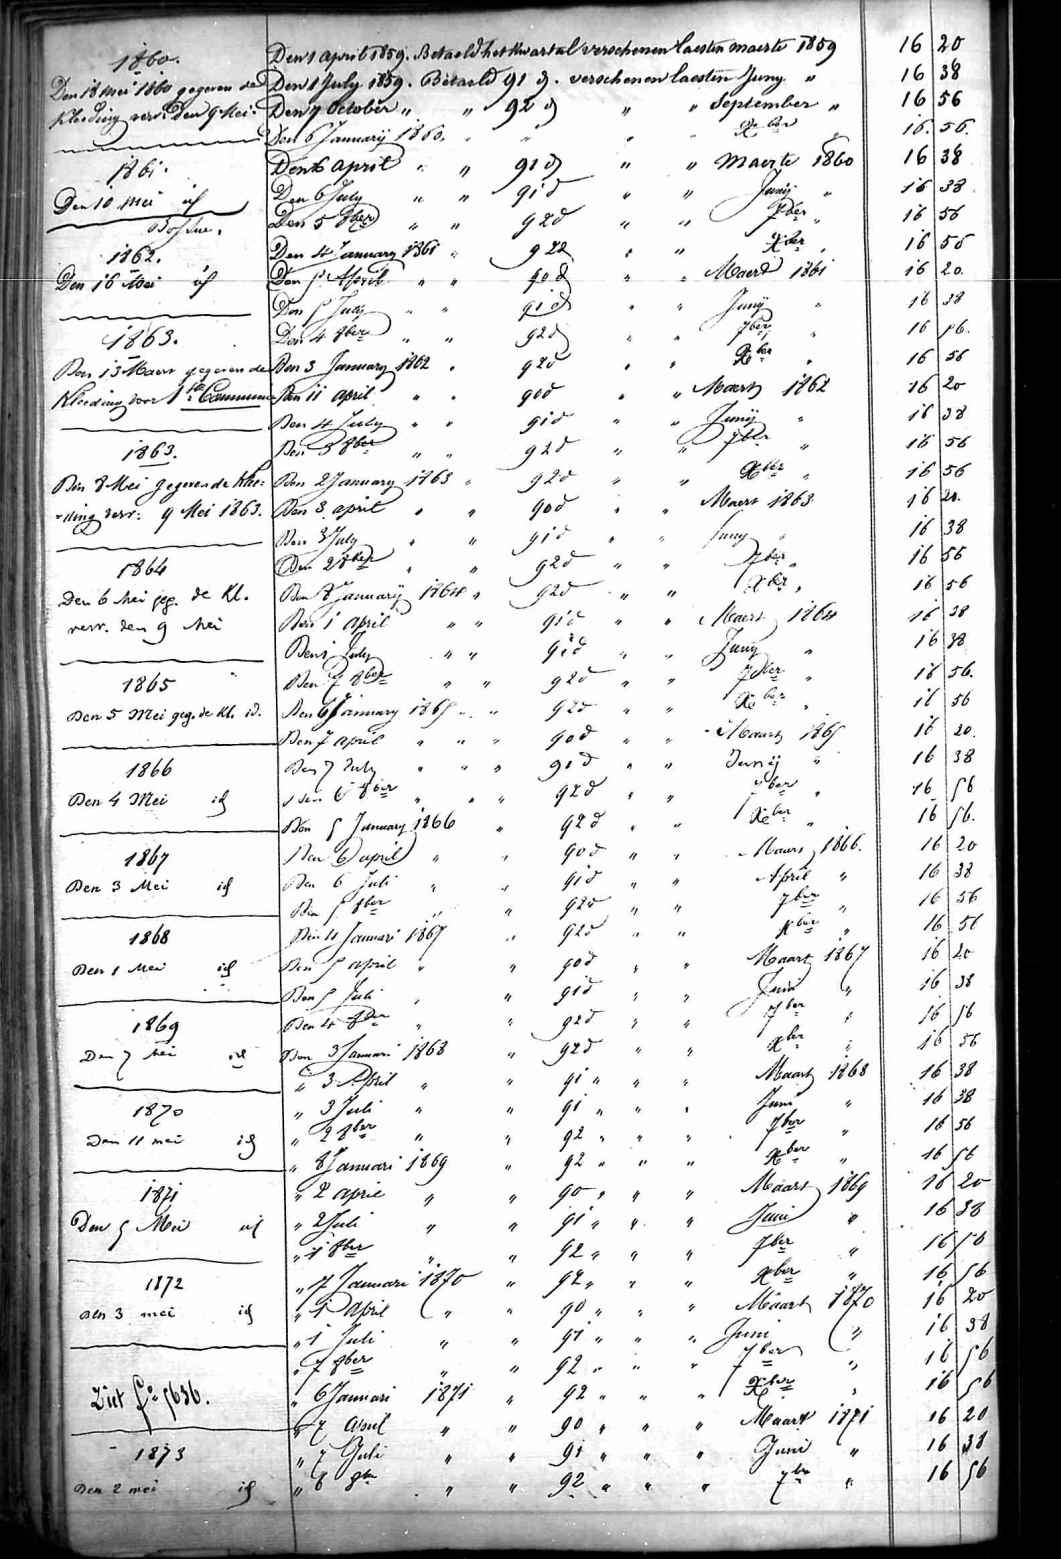 1860.
Den 18 Mei 1860 gegeven de
Kleeding verv. den 9 Mei.
1861.
Den 10 Mei id
1862.
Den 16 Mei id
1863.
Den 13 Maart gegeven de
Kleeding voor 1ste Communie
1863.
Den 8 Mei gegeven de Klee-
ding verv. 9 Mei 1863.
1864
Den 6 Mei geg. de Kl.
verv. den 9 Mei
1865
Den 5 Mei geg. de Kl. id.
1866
Den 4 Mei id
1867
Den 3 Mei id
1868
Den 1 Mei id
1869
Den 7 Mei id
1870
Den 11 mei id
1871
Den 5 Mei id
1872
Den 3 mei id
Ziet fo 5636.
1873
Den 2 mei id
Den 1 April 1859. Betaeld het Kwartael verschenen laesten maerte 1859 16 20
Den 1 July 1859. Betaeld 91 d. verschenen laesten Juny " 16 38
Den 7 October " " 92 d " " September " 16 56
Den 6 Januarij 1860. " " " " Xber " 16. 56.
Den 6 April " " 91 d " " Maerte 1860 16 38
Den 6 July " " 91 d " " Junij " 16 38
Den 5 8ber " " 92 d " " 7ber " 16 56
Den 4 January 1861 " 92 d " " Xber " 16 56
Den 5 April " " 90 d " " Maert 1861 16 20
Den 5 July " " 91 d " " Junij " 16 38
Den 4 8ber " " 92 d " " 7ber " 16 56.
Den 3 January 1862 " 92 d " " Xber 16 56
Den 11 april " " 90 d " " Maert 1862 16 20
Den 4 July " " 91 d " " Junij " 16 38
Den 3 8ber " " 92 d " " 7ber " 16 56
Den 2 January 1863 " 92 d " " Xber " 16 56
Den 3 april " " 90 d " " Maert 1863 16 20
Den 3 July " " 91 d " " Juny " 16 38
Den 2 8ber " " 92 d " " 7ber " 16 56
Den 8 Januarij 1864 " 92 d " " Xber " 16 56
Den 1 april " " 91 d " " Maert 1864 16 38
Den 1 July " " 91 d " " Juny " 16 38
Den 7 8ber " " 92 d " " 7ber " 16 56.
Den 6 January 1865 " " 92 d " " Xber " 16 56
Den 7 april " " " 90 d " " Maart 1865 16 20.
Den 7 July " " " 91 d " " Junij " 16 38
Den 6 8ber " " " 92 d " " 7ber " 16 56
Den 5 January 1866 " 92 d " " Xber " 16 56.
Den 6 april " " 90 d " " Maart 1866. 16 20
Den 6 Juli " " 91 d " " April " 16 38
Den 5 8ber " " 92 d " " 7ber " 16 56
Den 4 Januari 1867 " 92 d " " Xber " 16 56
Den 5 april " " 90 d " " Maart 1867 16 20
Den 5 Juli " " 91 d " " Juni " 16 38
Den 4 8ber " " 92 d " " 7ber " 16 56
Den 3 Januari 1868 " 92 d " " Xber " 16 56
" 3 April " " 91 " " " Maart 1868 16 38
" 3 Juli " " 91 " " " Juni " 16 38
" 2 8ber " " 92 " " " 7ber " 16 56
" 8 Januari 1869 " 92 " " " Xber " 16 56
" 2 april " " 90 " " " Maart 1869 16 20
" 2 Juli " " 91 " " " Juni " 16 38
" 1 8ber " " 92 " " " 7ber " 16 56
" 7 Januari 1870 " 92 " " " Xber " 16 56
" 1 april " " 90 " " " Maart 1870 16 20
" 1 Juli " " 91 " " " Juni " 16 38
" 7 8ber " " 92 " " " 7ber " 16 56
" 6 Januari 1871 " 92 " " " Xber " 16 56
" 7 april " " 90 " " " Maart 1871 16 20
" 7 Juli " " 91 " " " Juni " 16 38
" 6 8br " " 92 " " " 7br " 16 56